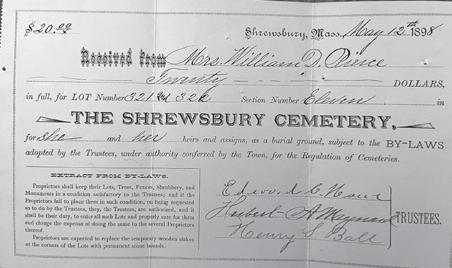 $20.00 Shrewsbury, Mass. May 12th 1898
Received from Mrs. William D. Pierce
Twenty DOLLARS,
in full, for LOT Number 321 & 322 Section Number Eleven in
THE SHREWSBURY CEMETERY,
for she and her heirs and assigns, as a burial ground, subject to the BY-LAWS
adopted by the Trustees, under authority conferred by the Town, for the Regulation of Cemeteries.
EXTRACT FROM BY-LAWS.
Proprietors shall keep their Lots, Trees, Fences, Shrubbery, and
Monuments in a condition satisfactory to the Trustees; and if the
Proprietors fail to place them in such condition, on being requested
so to do by the Trustees, they, the Trustees, are authorized, and it
shall be their duty, to enter all such Lots and properly care for them
and charge the expense of doing the same to the several Proprietors
thereof.
Proprietors are expected to replace the temporary wooden stakes
at the corners of the Lots with permanent stone bounds.
Edward C.
Herbert A Maynard
Henry S Ball
TRUSTEES.